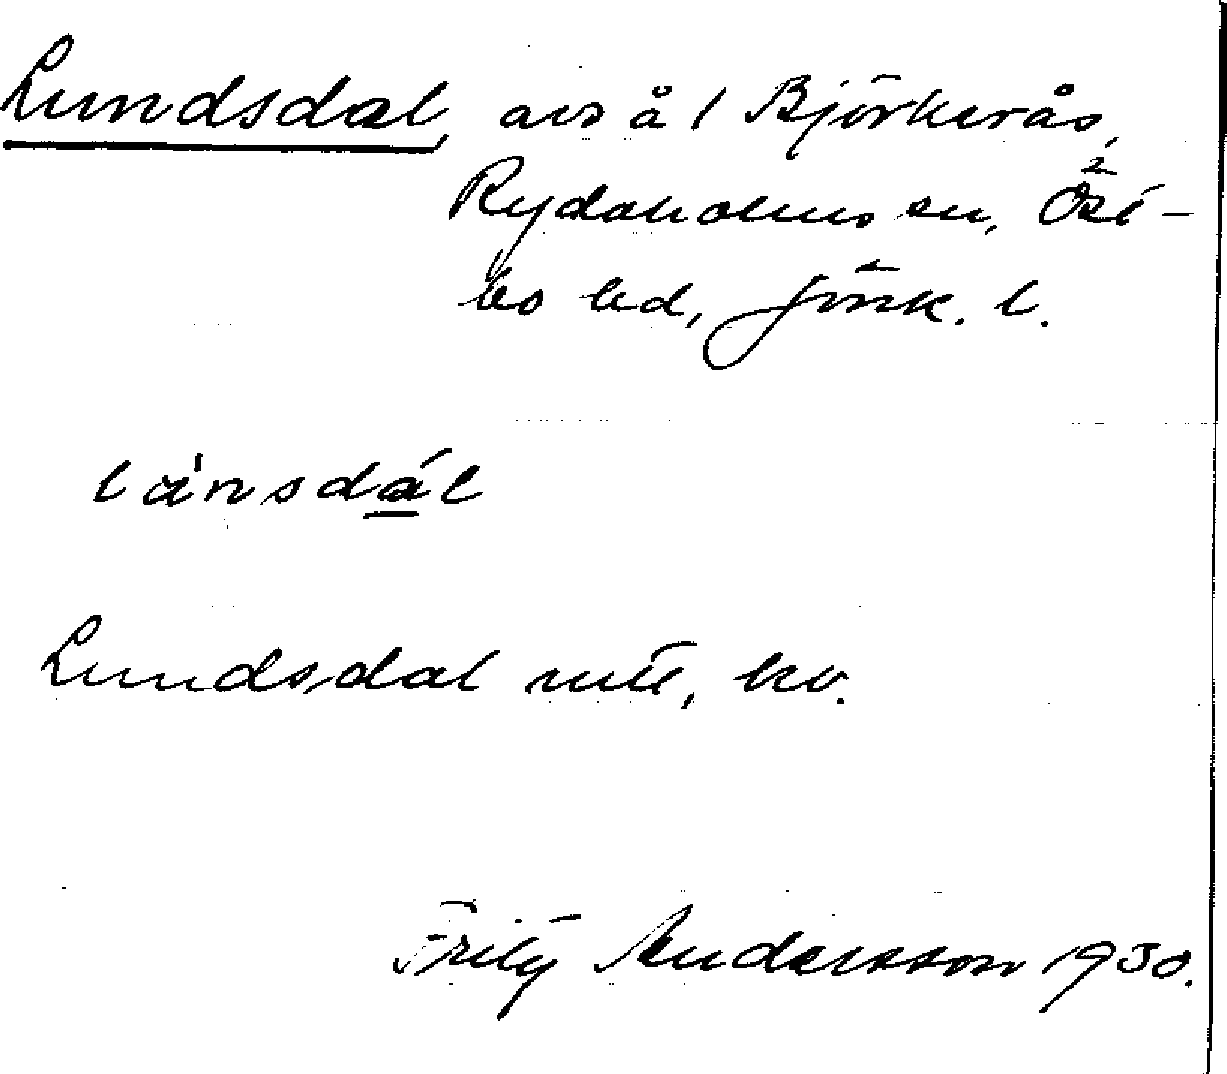 Lundsdal, avs å 1 Björkerås,
Rydaholms sn, Öst-
bo hd, Jönk. l.
lånsdál
Lundsdal mtl, kv.
Fritz Andersson 1930.